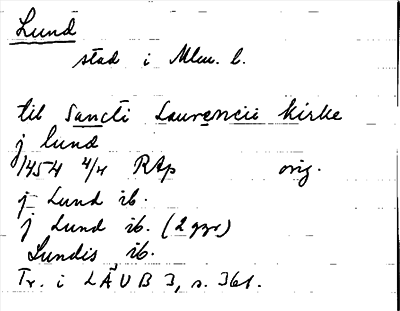 Lund
stad i Mlm. l.
til Sancti Laurencii kirke
j lund
1454 4/4 RAp orig.
j Lund ib.
j Lund ib. (2 ggr)
Lundis ib.
Tr. i LÄUB 3, s. 361.